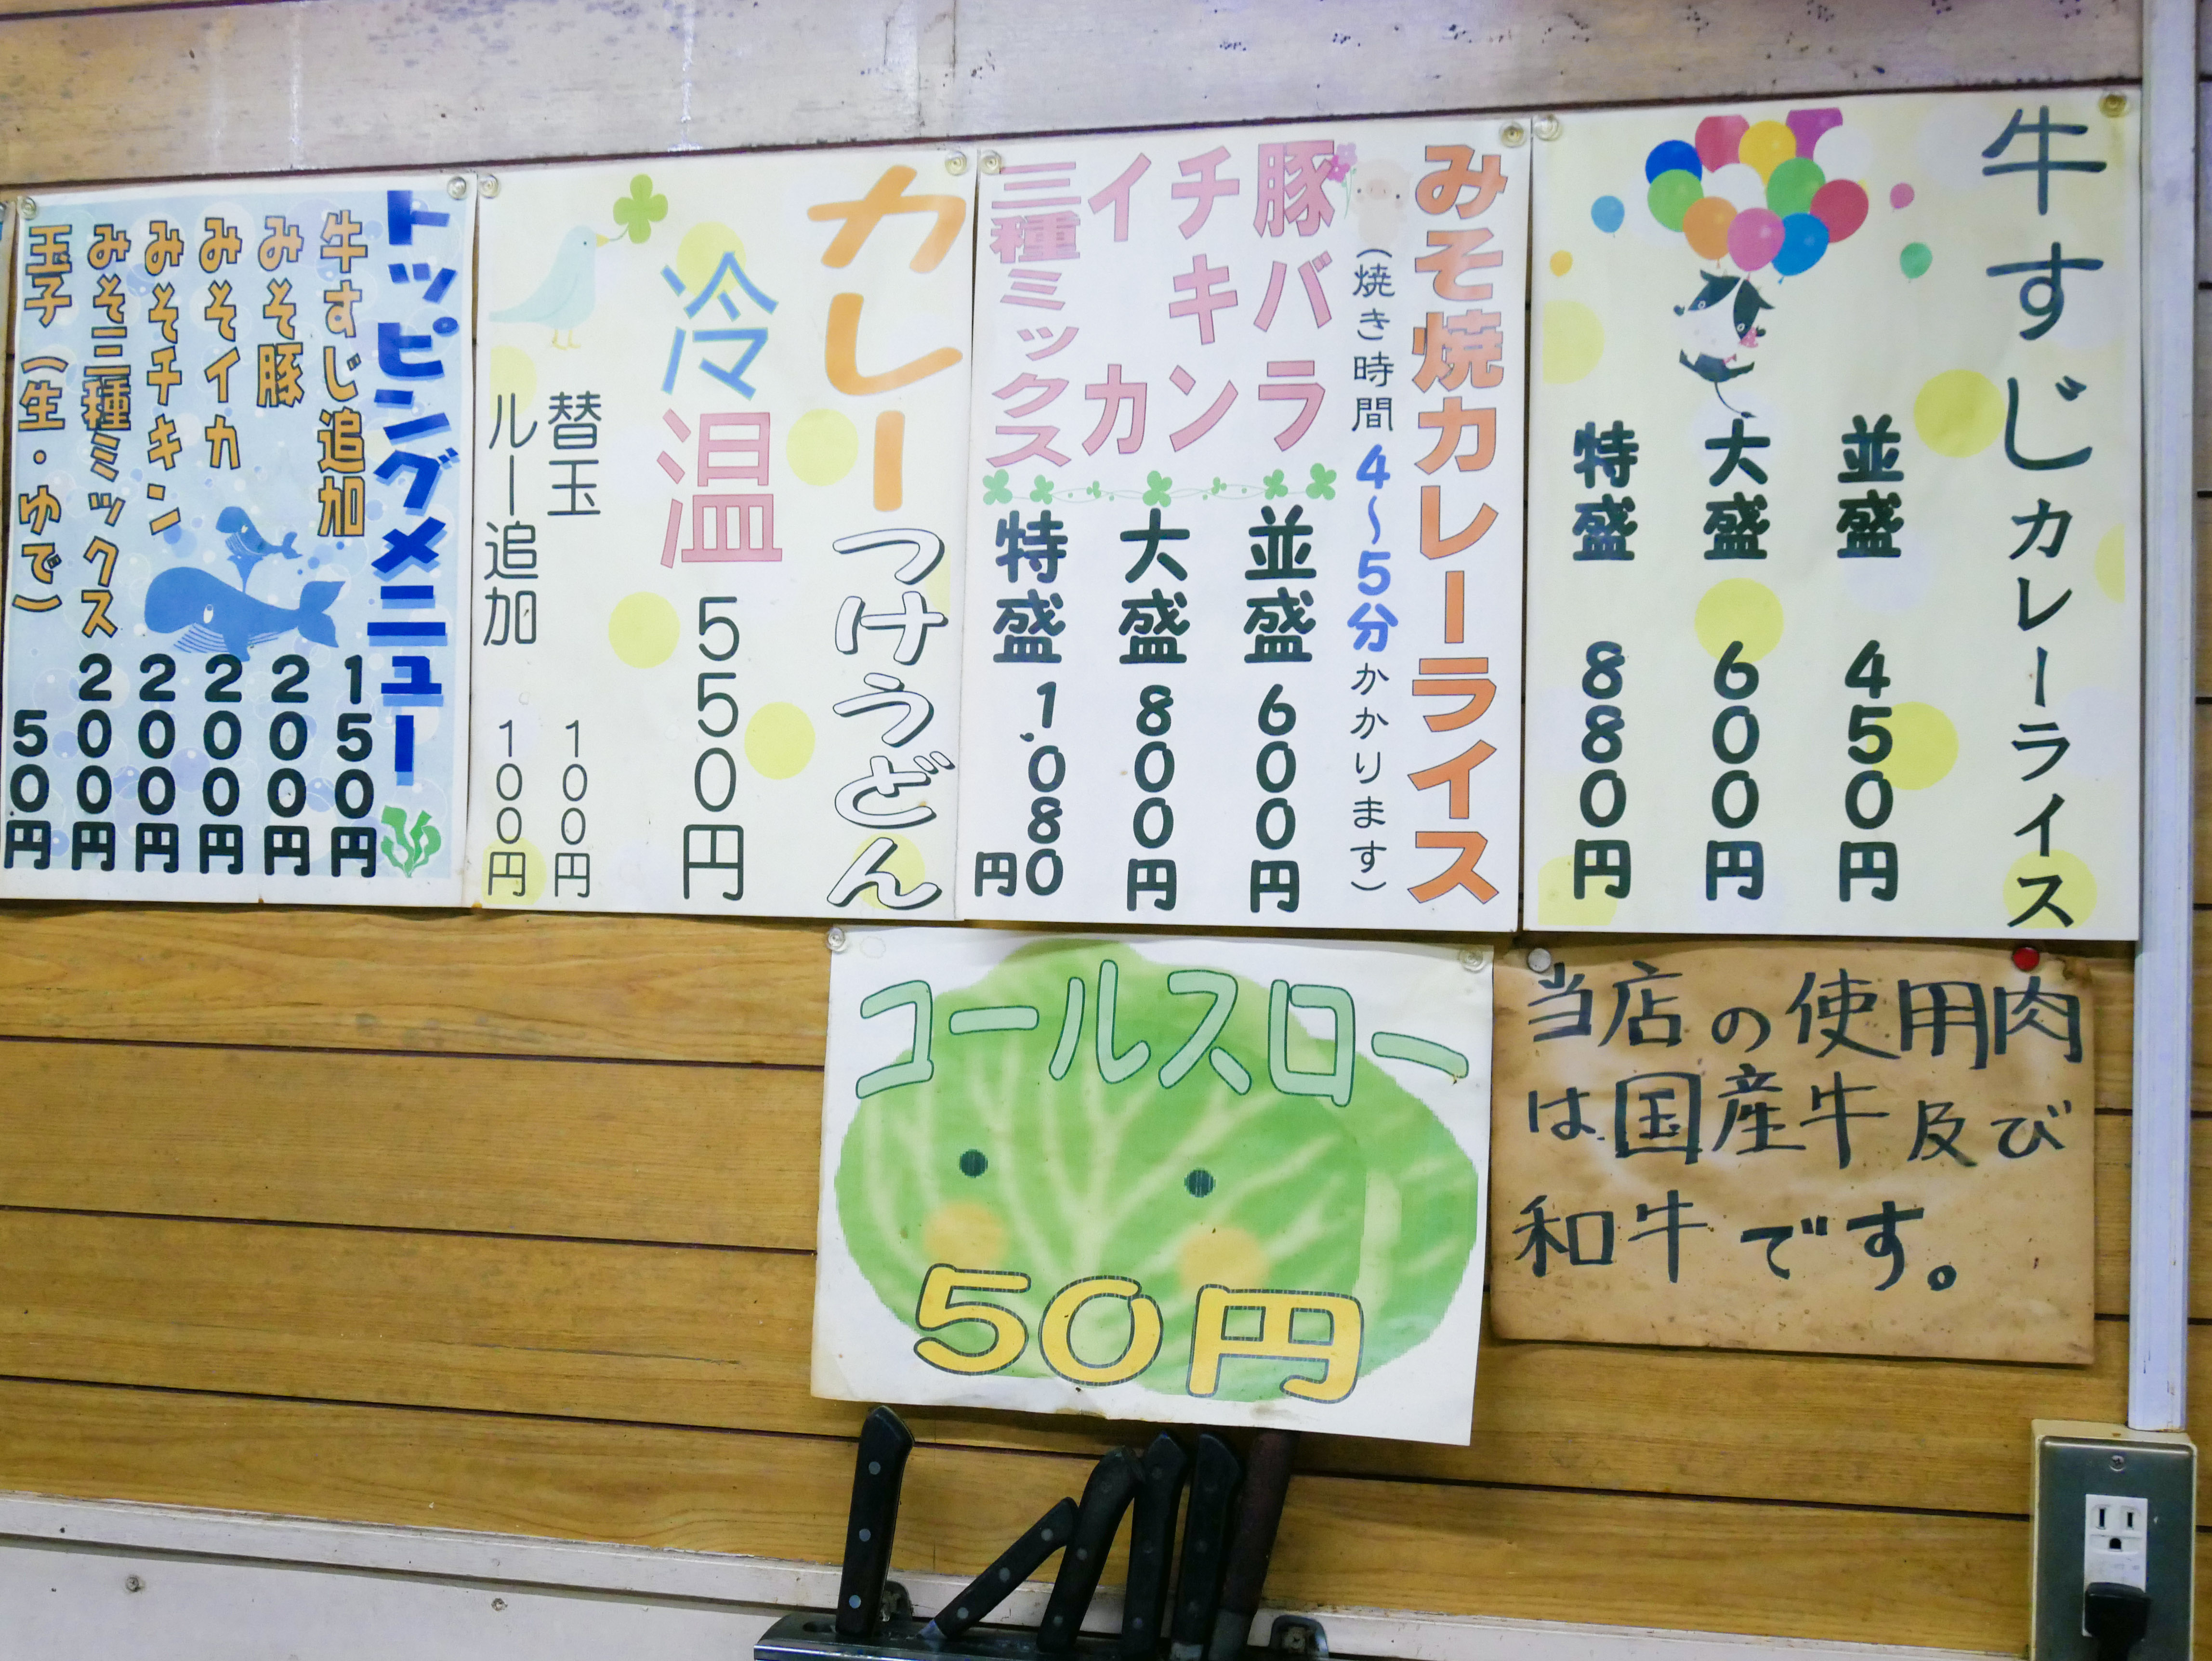 牛すじカレーライス
並盛 450円
大盛 600円
特盛 880円
みそ焼カレーライス
(焼き時間4～5分かかります)
豚バラ
チキン
イカ
三種ミックス
並盛 600円
大盛 800円
特盛 1,080円
カレーつけうどん
冷温 550円
替玉 100円
ルー追加 100円
トッピングメニュー
牛すじ追加 150円
みそ豚 200円
みそイカ 200円
みそチキン 200円
みそ三種ミックス 200円
玉子(生・ゆで) 50円
コールスロー
50円
当店の使用肉
は国産牛及び
和牛です。